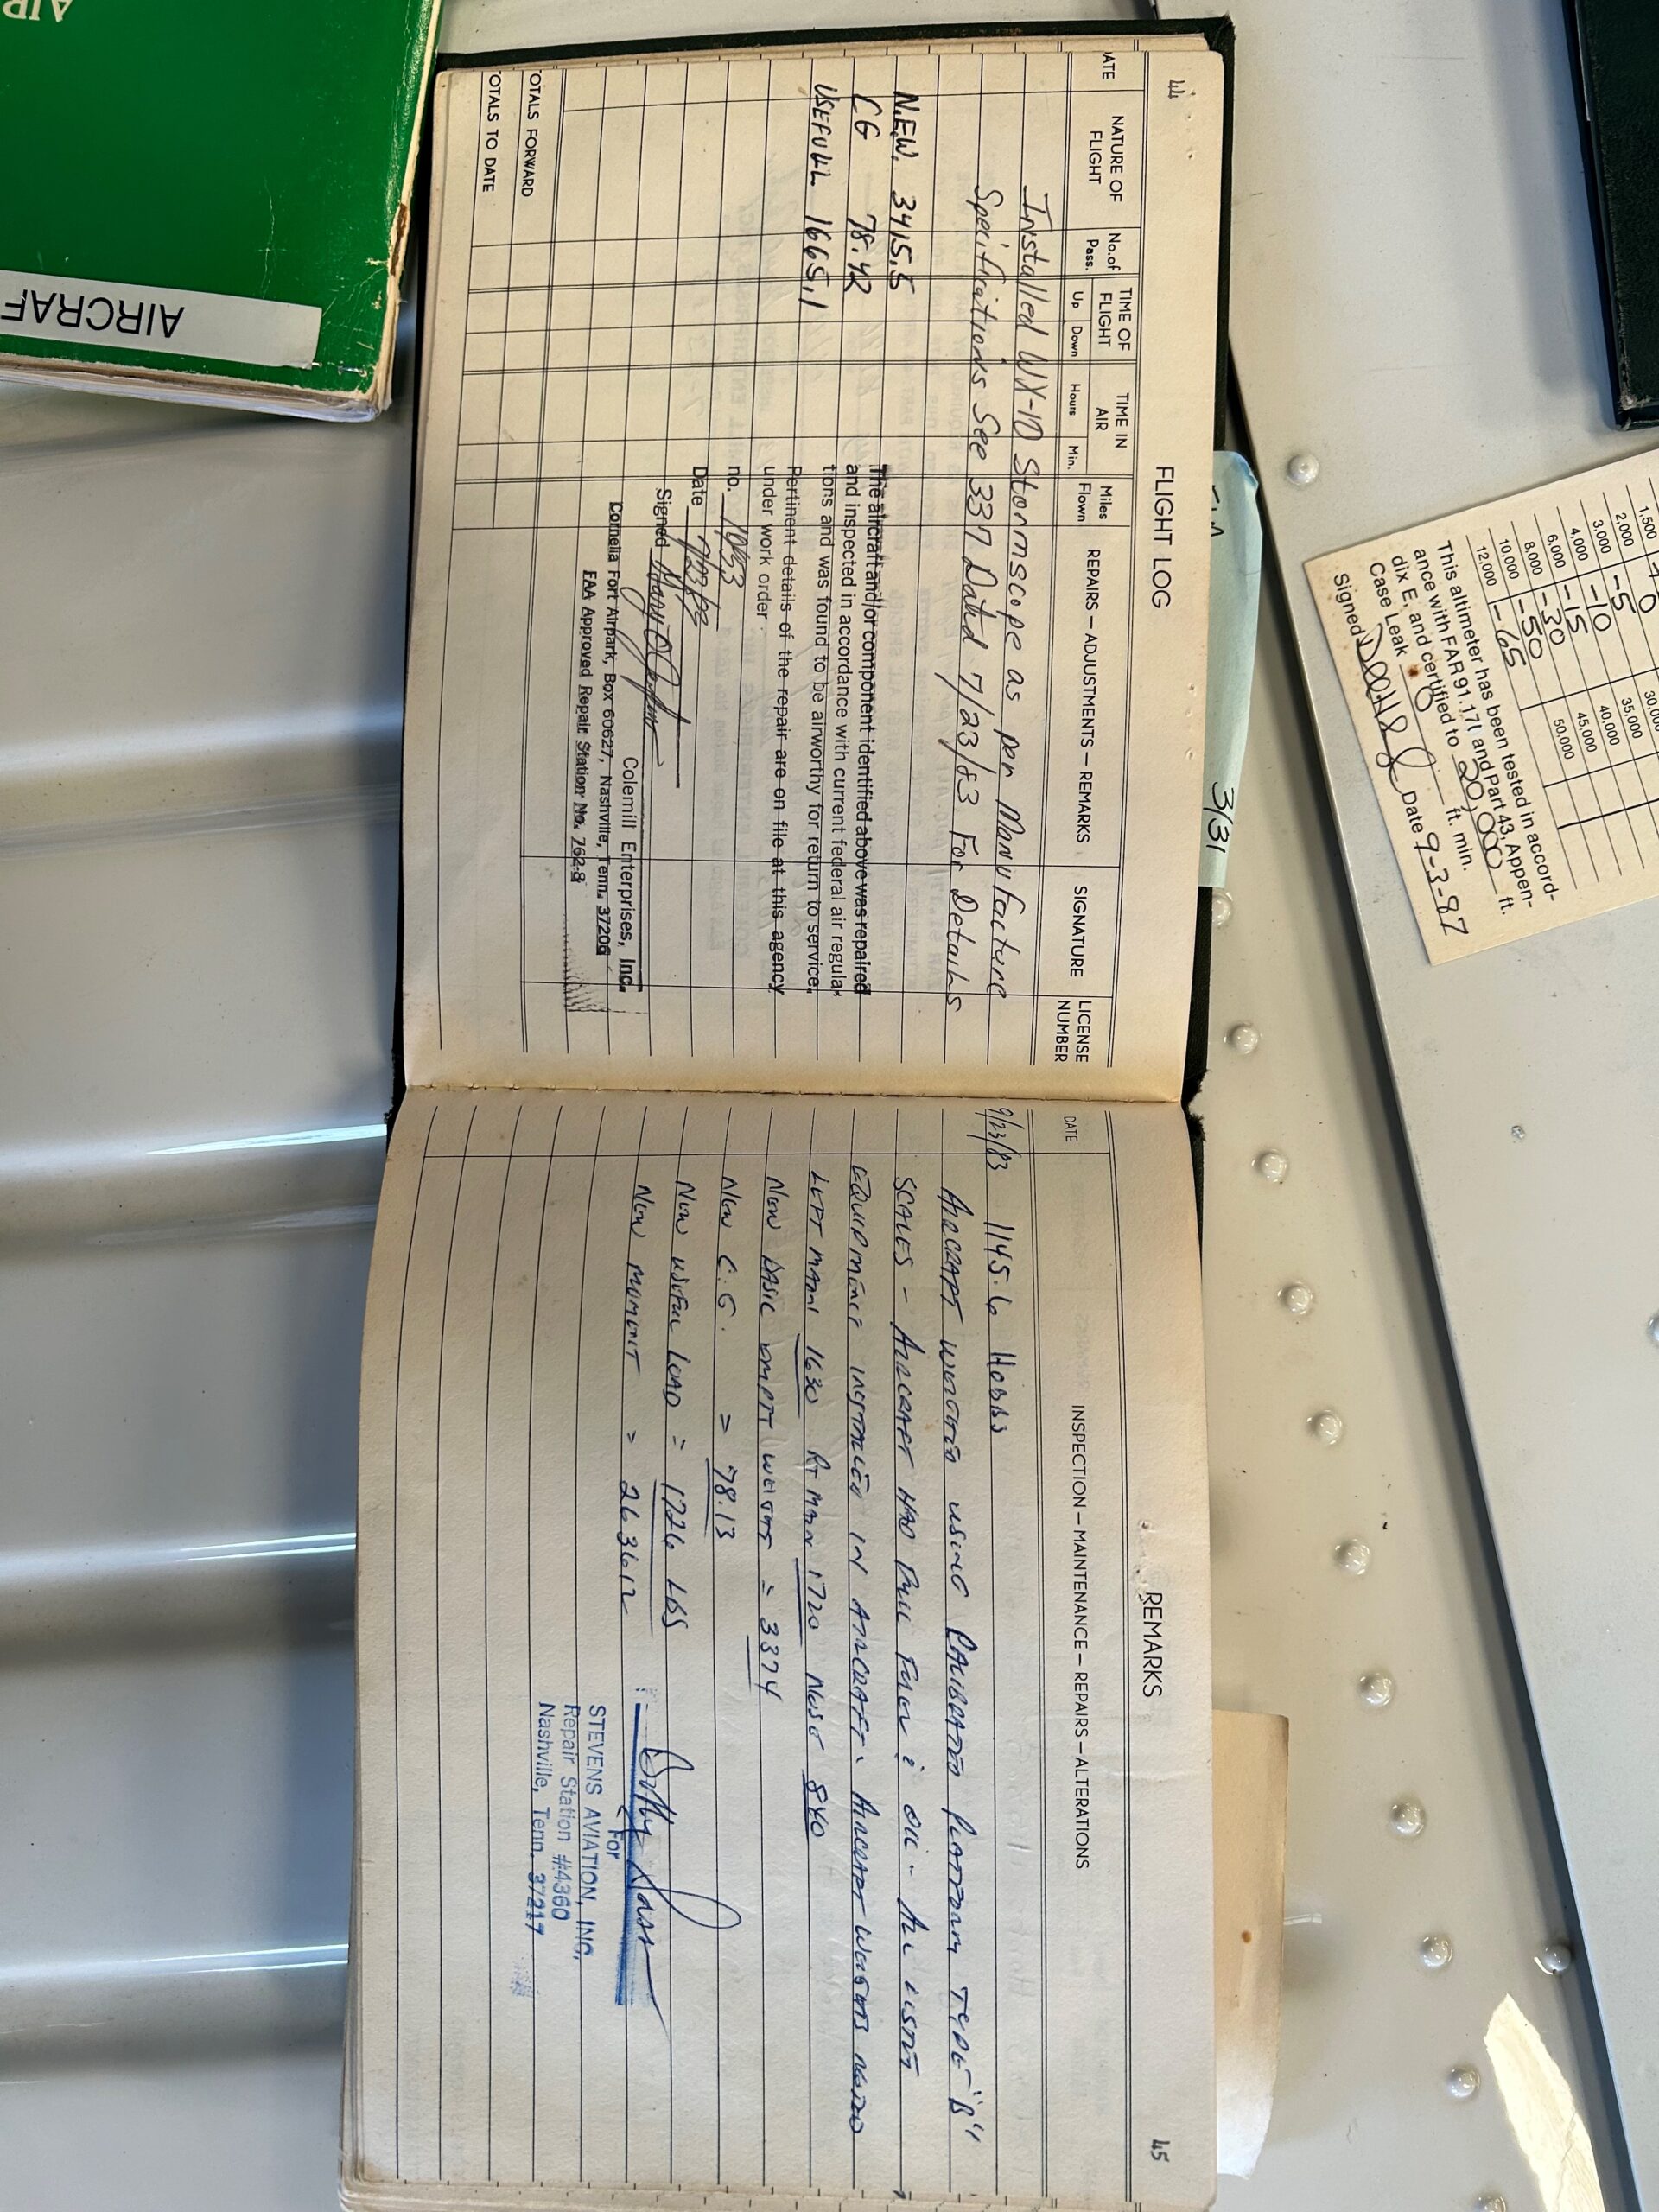 44
FLIGHT LOG
ATE
NATURE OF FLIGHT
No. of Pass.
TIME OF FLIGHT
Up
Down
TIME IN AIR
Hours
Min.
Miles Flown
REPAIRS — ADJUSTMENTS — REMARKS
SIGNATURE
LICENSE NUMBER
Installed WX-10 Stormscope as per Manufacture
Specifications See 337 Dated 7/23/83 For Details
N.E.W. 3415.5
CG 78.42
USEFULL 1665.1
The aircraft and/or component identified above was repaired
and inspected in accordance with current federal air regula-
tions and was found to be airworthy for return to service.
Pertinent details of the repair are on file at this agency
under work order
no. 10853
Date 7/23/83
Signed
Colemill Enterprises, Inc.
Cornelia Fort Airpark, Box 60627, Nashville, Tenn. 37206
FAA Approved Repair Station No. 762-8
OTALS FORWARD
OTALS TO DATE
REMARKS
45
DATE
INSPECTION — MAINTENANCE — REPAIRS — ALTERATIONS
9/23/83 1145.6 Hobbs
AIRCRAFT WEIGHED USING CALIBRATED PLATFORM TYPE "B"
SCALES - AIRCRAFT HAD FULL FUEL & OIL - ALL LISTED
EQUIPMENT INSTALLED IN AIRCRAFT. AIRCRAFT WEIGHTS NOTED
LEFT MAIN 1630 RT MAIN 1720 NOSE 840
NEW BASIC EMPTY WEIGHT = 3374
NEW C.G. = 78.13
NEW USEFUL LOAD = 1726 LBS
NEW MOMENT = 263612
For
STEVENS AVIATION, INC.
Repair Station #4360
Nashville, Tenn. 37217
AIR
AIRCRAF
3/31
1,500
2,000 -5
3,000 -10
4,000 -15
6,000 -30
8,000 -50
10,000 -65
12,000
30,000
35,000
40,000
45,000
50,000
This altimeter has been tested in accord-
ance with FAR 91.171 and Part 43, Appen-
dix E, and certified to 20,000 ft.
Case Leak 0 ft. min.
Signed Date 9-3-87